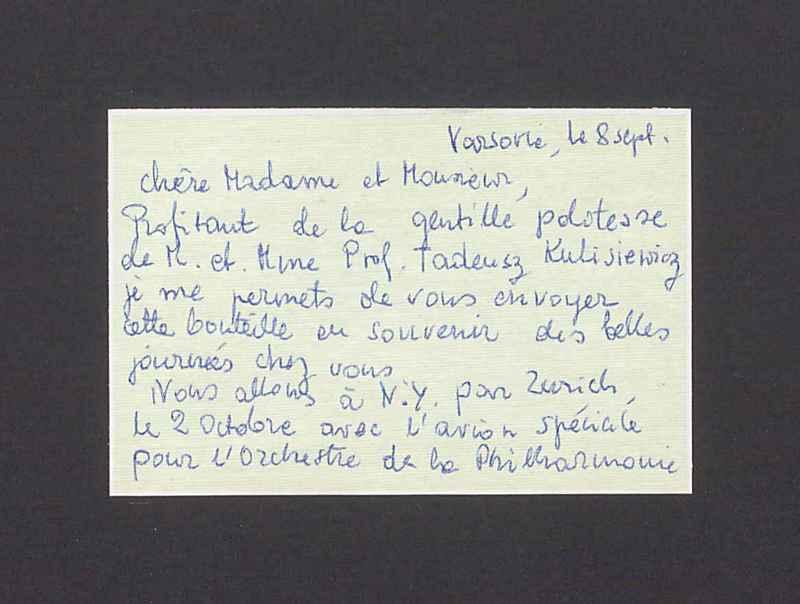 Varsovie, le 8 sept.
Chère Madame et Monsieur,
Profitant de la gentille politesse
de M. et Mme Prof. Tadeusz Kulisiewicz
je me permets de vous envoyer
cette bouteille en souvenir des belles
journées chez vous
Nous allons à N.Y. par Zurich,
le 2 Octobre avec l'avion spéciale
pour l'Orchestre de la Philharmonie